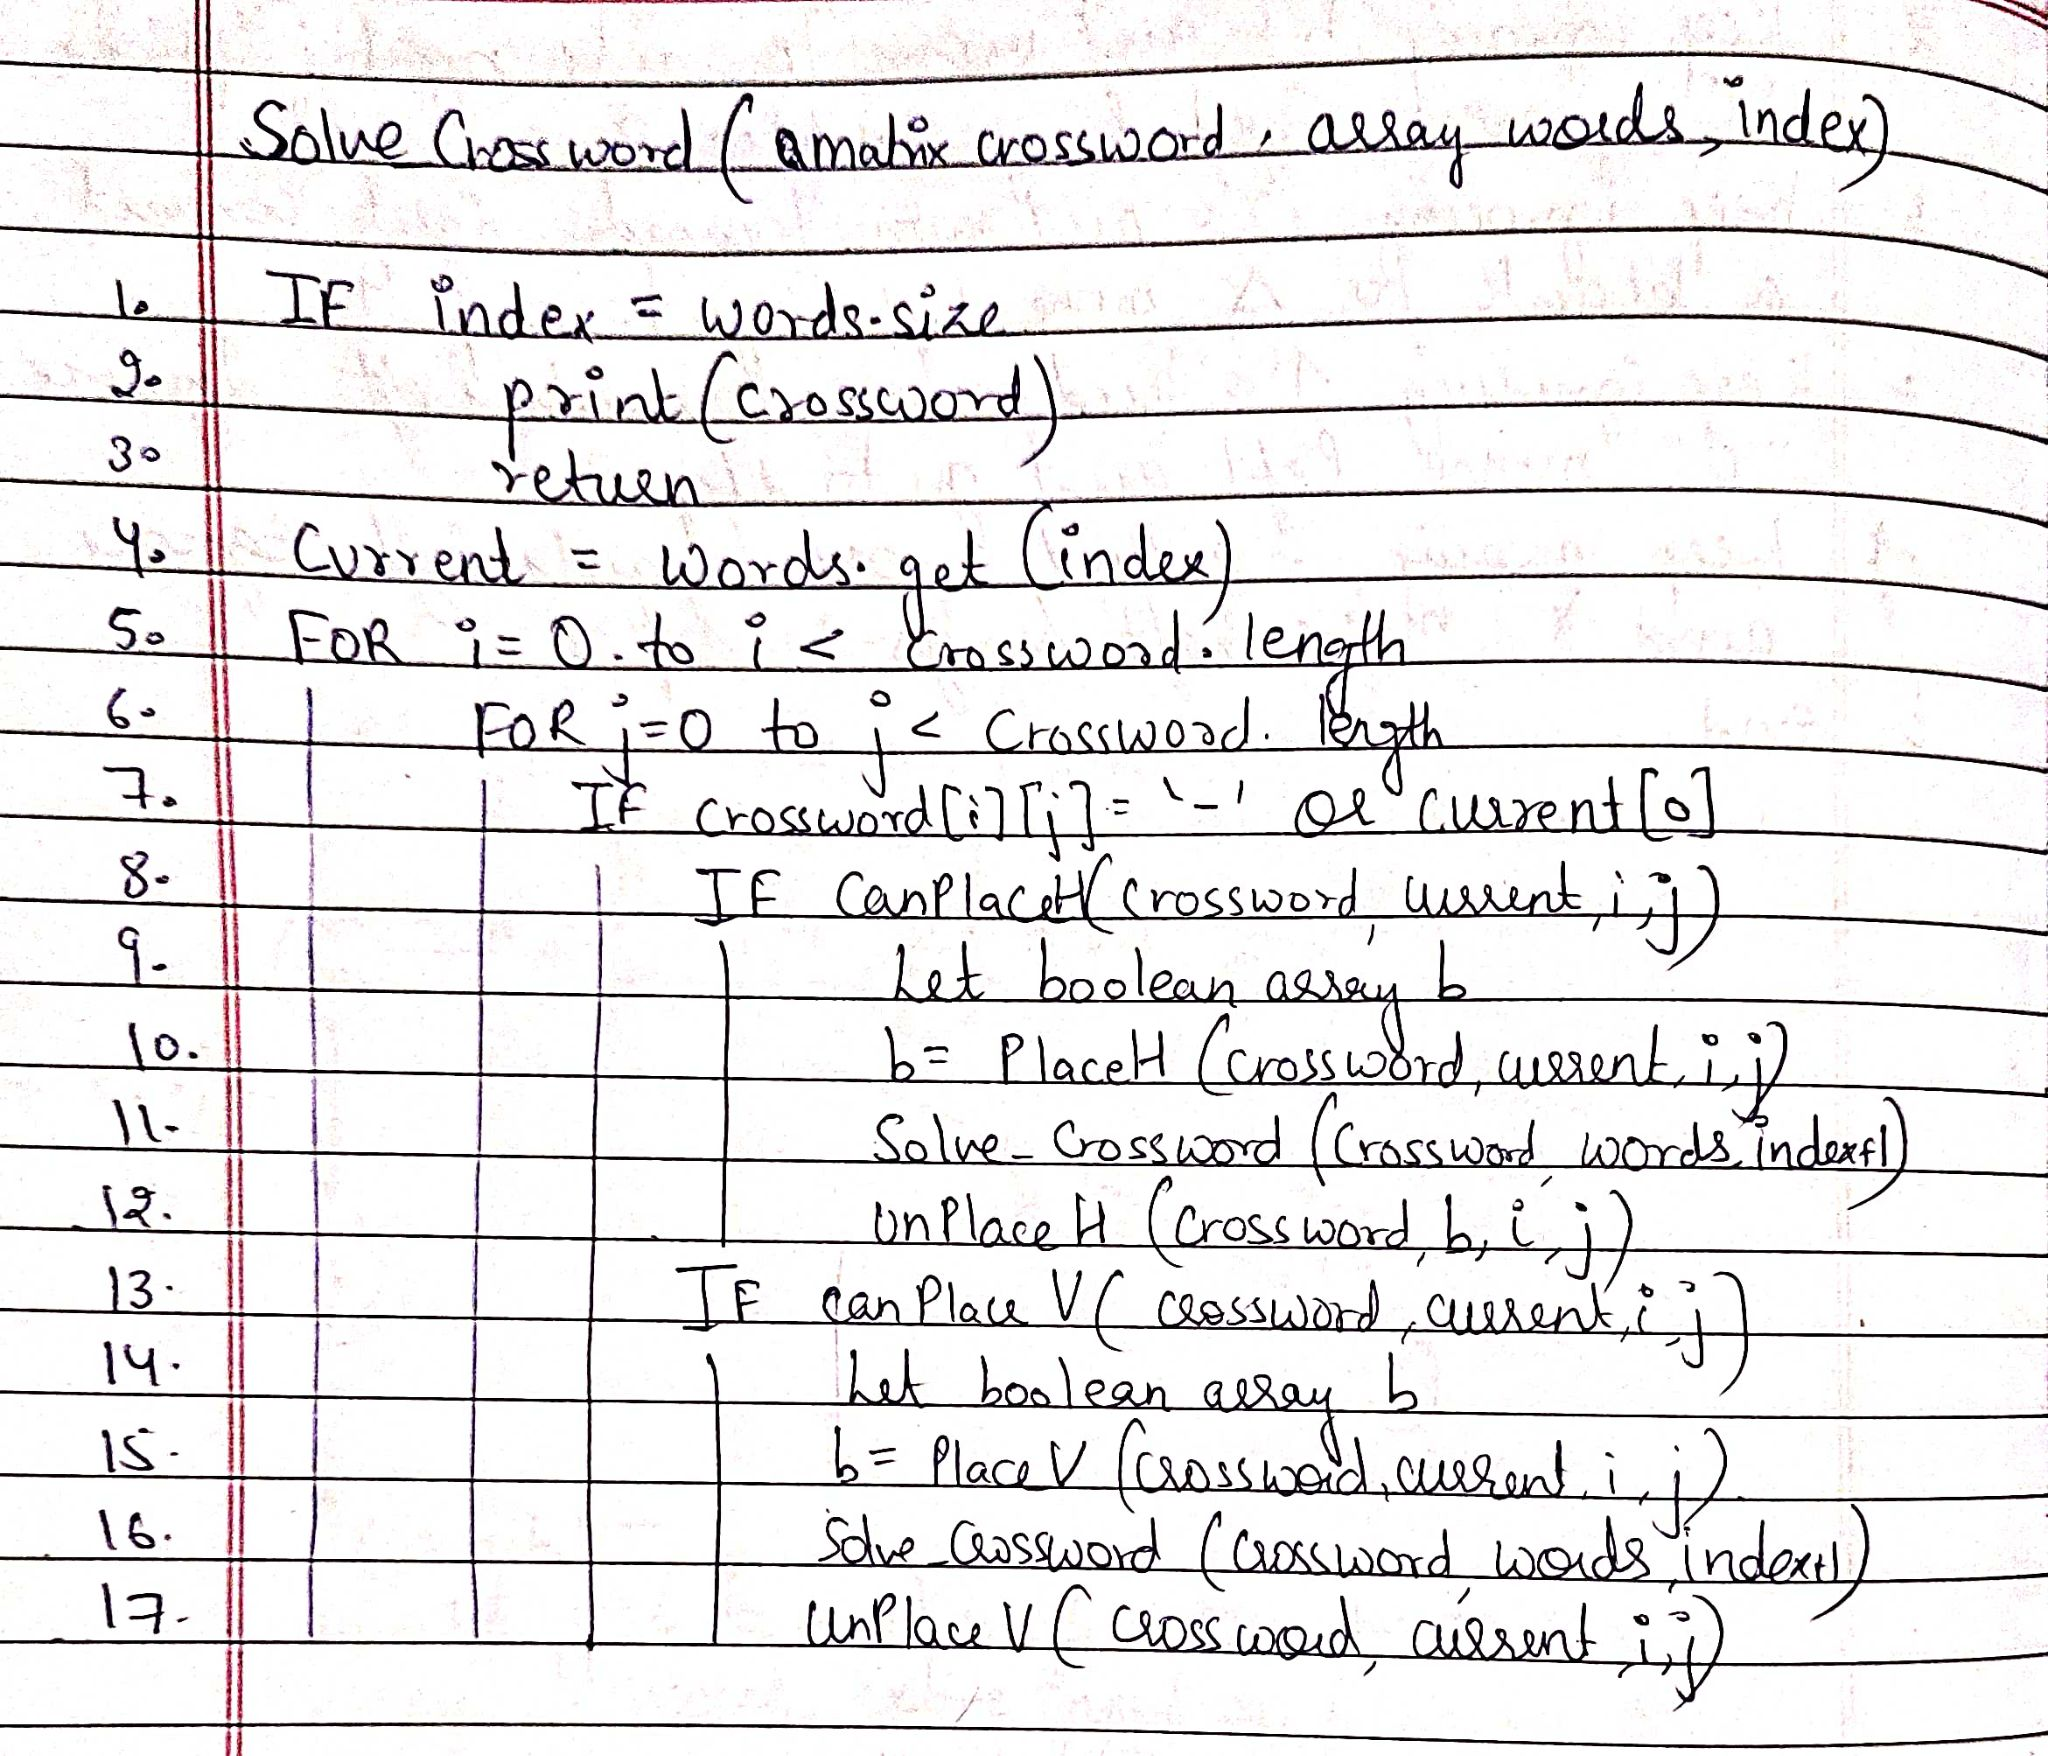 Solve Crossword ( a matrix crossword, array words, index)
1. IF index = words.size
2. print (crossword)
3. return
4. Current = words.get (index)
5. FOR i = 0. to i < crossword.length
6. FOR j=0 to j < Crossword.length
7. IF crossword[i][j] = '-' or current[0]
8. IF CanPlaceH(crossword, current, i, j)
9. Let boolean array b
10. b = PlaceH (crossword, current, i, j)
11. Solve_Crossword (Crossword, words, index+1)
12. UnPlace H (crossword, b, i, j)
13. IF can Place V( crossword, current, i, j)
14. Let boolean array b
15. b = Place V (crossword, current, i, j)
16. Solve_Crossword (crossword, words, index+1)
17. UnPlace V ( crossword, current, i, j)